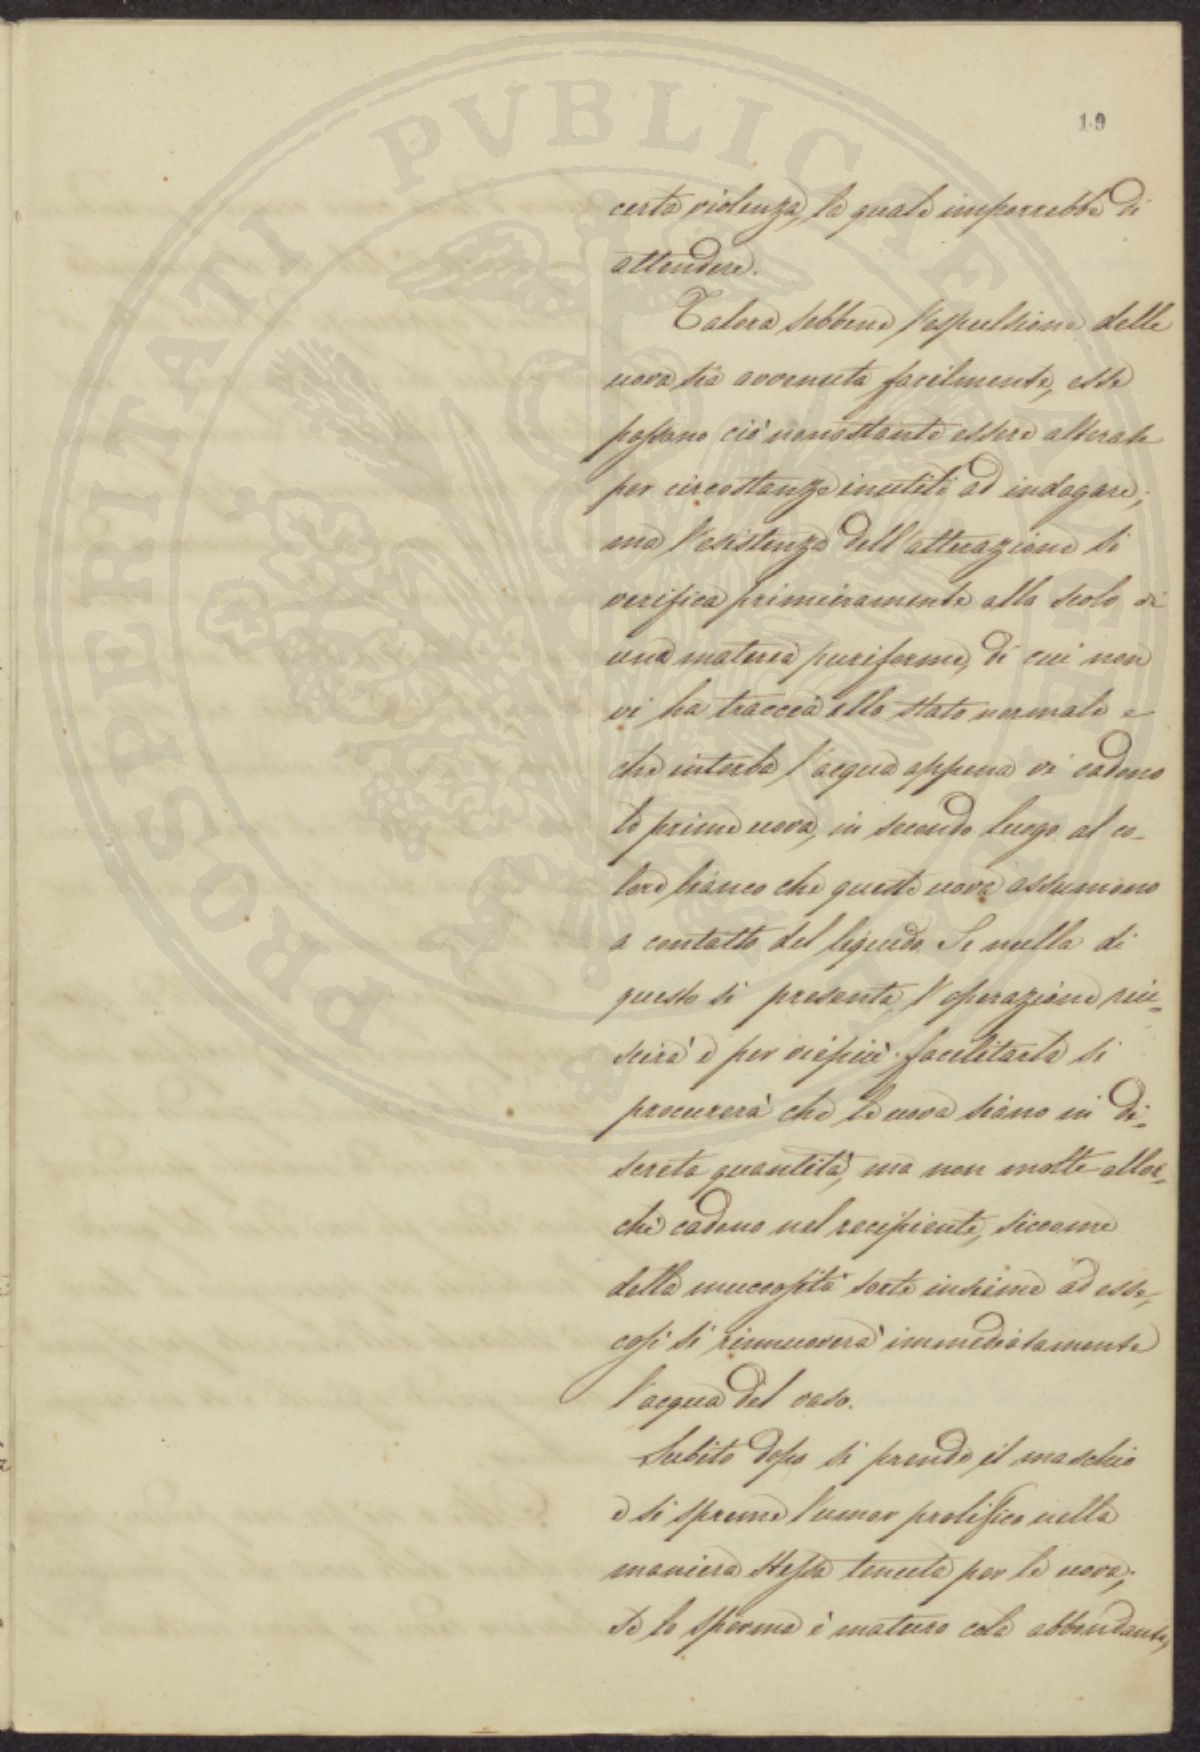 PROSPERITATI PVBLICAE AVGENDAE
19
certa violenza, la quale imporrebbe di
attendere.
Talora sebbene l'espulsione delle
uova sia avvenuta facilmente, esse
possono ciò nonostante essere alterate
per circostanze inutili ad indagare;
ma l'esistenza dell'alterazione si
verifica primieramente allo scolo di
una materia puriforme, di cui non
vi ha traccia allo stato normale e
che intorba l'acqua appena vi cadono
le prime uova, in secondo luogo al co-
lore bianco che queste uova assumono
a contatto del liquido. Se nulla di
questo si presenta, l'operazione riu-
scirà e per viepiù facilitarla si
procurerà che le uova siano in di-
screta quantità, ma non molte allor-
chè cadono nel recipiente, siccome
delle muccosità sorte insieme ad esse,
così si rinnuoverà immediatamente
l'acqua del vaso.
Subito dopo si prende il maschio
e si spreme l'umor prolifico nella
maniera stessa tenuta per le uova;
se lo sperma è maturo cola abbondante,